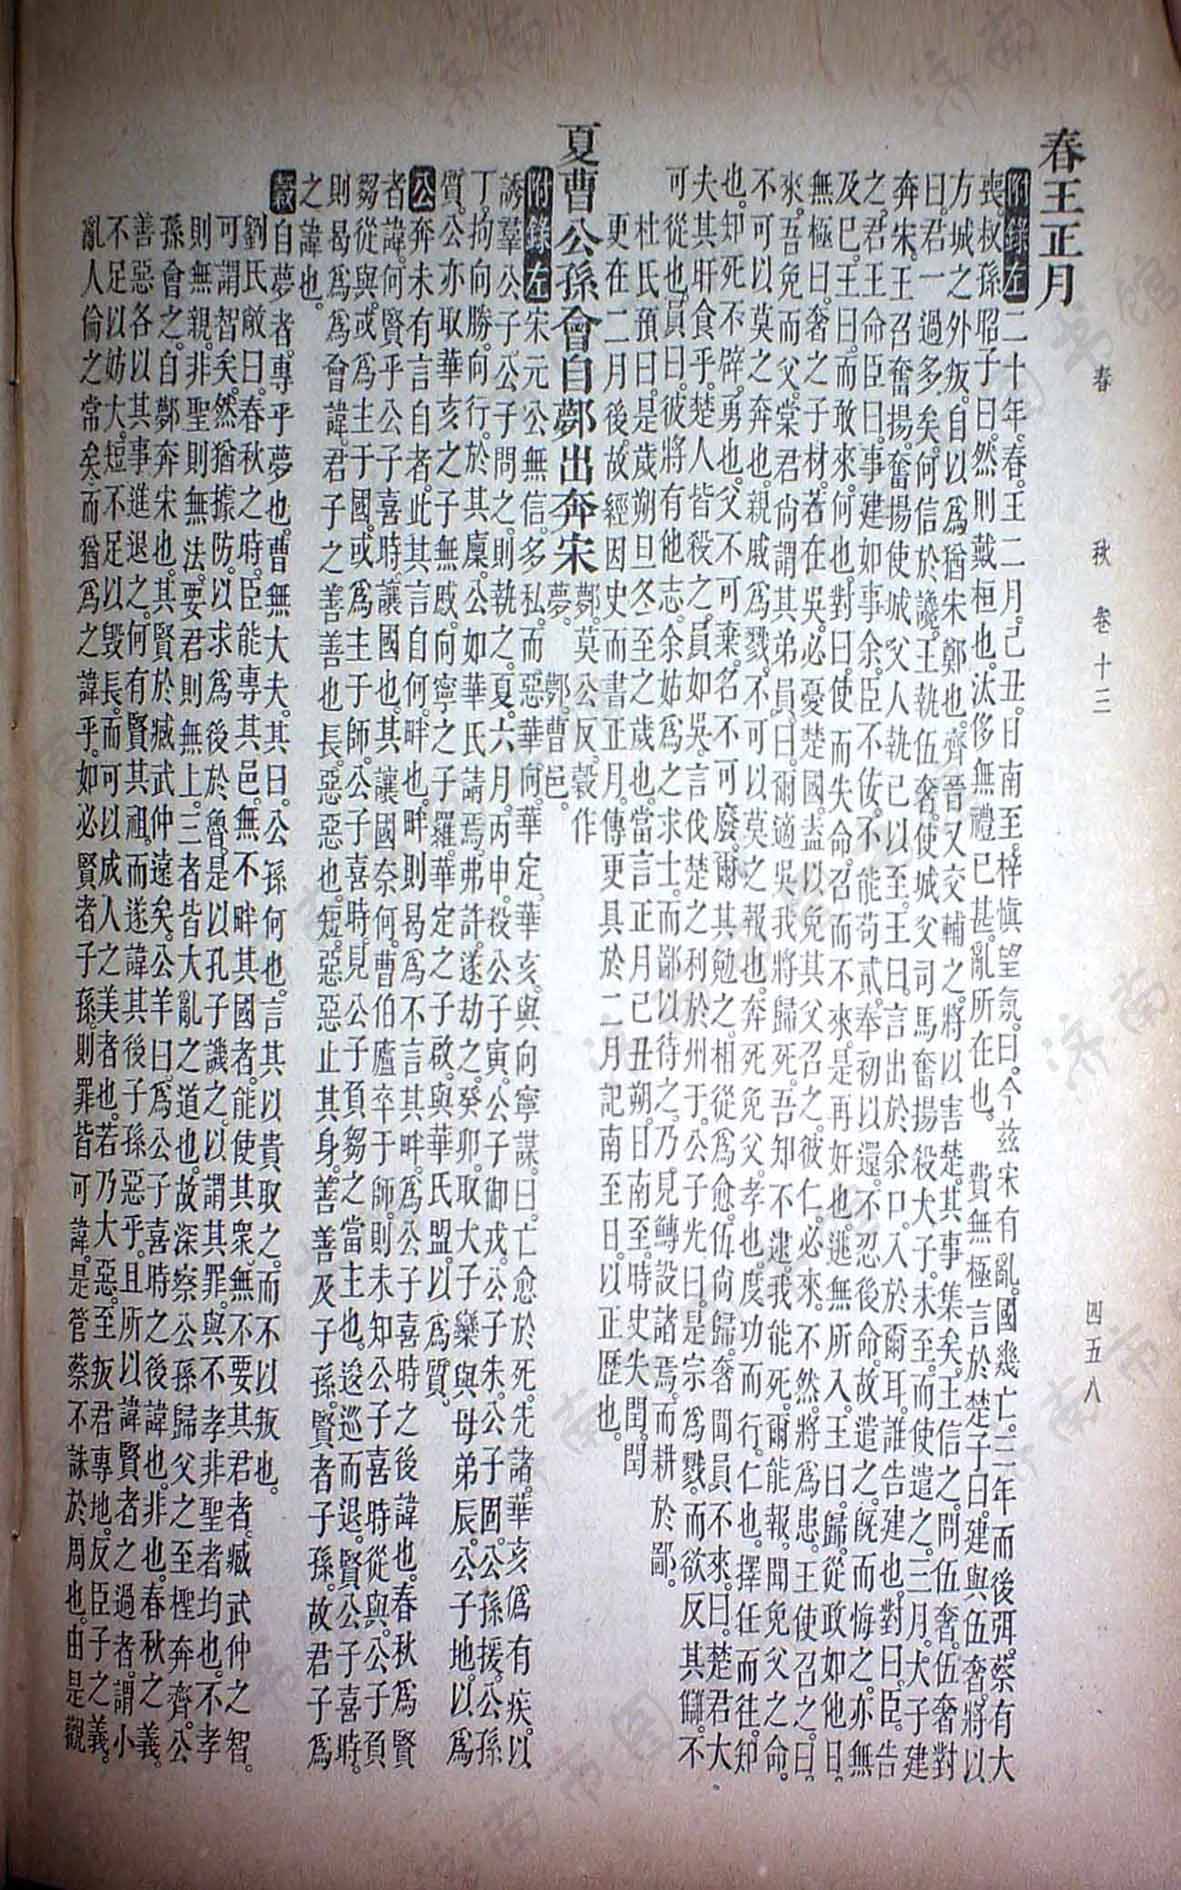 春秋　卷十三　四五八
春王正月
附錄左　二十年春王二月己丑日南至梓愼望氛曰今茲宋有亂國幾亡三年而後弭蔡有大
喪叔孫昭子曰然則戴桓也汏侈無禮已甚亂所在也　費無極言於楚子曰建與伍奢將以
方城之外叛自以爲猶宋鄭也齊晉又交輔之將以害楚其事集矣王信之問伍奢伍奢對
曰君一過多矣何信於讒王執伍奢使城父司馬奮揚殺大子未至而使遣之三月大子建
奔宋王召奮揚奮揚使城父人執己以至王曰言出於余口入於爾耳誰告建也對曰臣告
之君王命臣曰事建如事余臣不佞不能苟貳奉初以還不忍後命故遣之旣而悔之亦無
及已王曰而敢來何也對曰使而失命召而不來是再奸也逃無所入王曰歸從政如他日
無極曰奢之子材若在吳必憂楚國盍以免其父召之彼仁必來不然將爲患王使召之曰
來吾免而父棠君尙謂其弟員曰爾適吳我將歸死吾知不逮我能死爾能報聞免父之命
不可以莫之奔也親戚爲戮不可以莫之報也奔死免父孝也度功而行仁也擇任而往知
也知死不辟勇也父不可棄名不可廢爾其勉之相從爲愈伍尙歸奢聞員不來曰楚君大
夫其旰食乎楚人皆殺之員如吳言伐楚之利於州于公子光曰是宗爲戮而欲反其讎不
可從也員曰彼將有他志余姑爲之求士而鄙以待之乃見鱄設諸焉而耕於鄙
杜氏預曰是歲朔旦冬至之歲也當言正月己丑朔日南至時史失閏閏
更在二月後故經因史而書正月傳更具於二月記南至日以正歷也
夏曹公孫會自鄸出奔宋　鄸莫公反穀作夢　鄸曹邑
附錄左　宋元公無信多私而惡華向華定華亥與向寧謀曰亡愈於死先諸華亥僞有疾以
誘羣公子公子問之則執之夏六月丙申殺公子寅公子御戎公子朱公子固公孫援公孫
丁拘向勝向行於其廩公如華氏請焉弗許遂劫之癸卯取大子欒與母弟辰公子地以爲
質公亦取華亥之子無慼向寧之子羅華定之子啟與華氏盟以爲質
公　奔未有言自者此其言自何畔也畔則曷爲不言其畔爲公子喜時之後諱也春秋爲賢
者諱何賢乎公子喜時讓國也其讓國奈何曹伯廬卒于師則未知公子喜時從與公子負
芻從與或爲主于國或爲主于師公子喜時見公子負芻之當主也逡巡而退賢公子喜時
則曷爲爲會諱君子之善善也長惡惡也短惡惡止其身善善及子孫賢者子孫故君子爲
之諱也
穀　自夢者專乎夢也曹無大夫其曰公孫何也言其以貴取之而不以叛也
劉氏敞曰春秋之時臣能專其邑無不畔其國者能使其衆無不要其君者臧武仲之智
可謂智矣然猶據防以求爲後於魯是以孔子譏之以謂其罪與不孝非聖者均也不孝
則無親非聖則無法要君則無上三者皆大亂之道也故深察公孫歸父之至檉奔齊公
孫會之自鄸奔宋也其賢於臧武仲遠矣公羊曰爲公子喜時之後諱也非也春秋之義
善惡各以其事進退之何有賢其祖而遂諱其後子孫惡乎且所以諱賢者之過者謂小
不足以妨大短不足以毀長而可以成人之美者也若乃大惡至叛君專地反臣子之義
亂人倫之常矣而猶爲之諱乎如必賢者子孫則罪皆可諱是管蔡不誅於周也由是觀